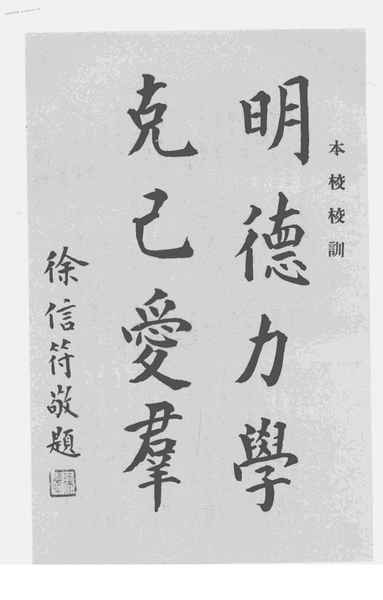 本校校訓
明德力學
克己愛羣
徐信符敬題